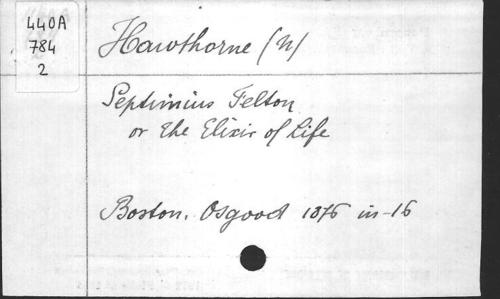 440A
784
2
Hawthorne (N)
Septimius Felton
or the Elixir of Life
Boston. Osgood 1876 in-16